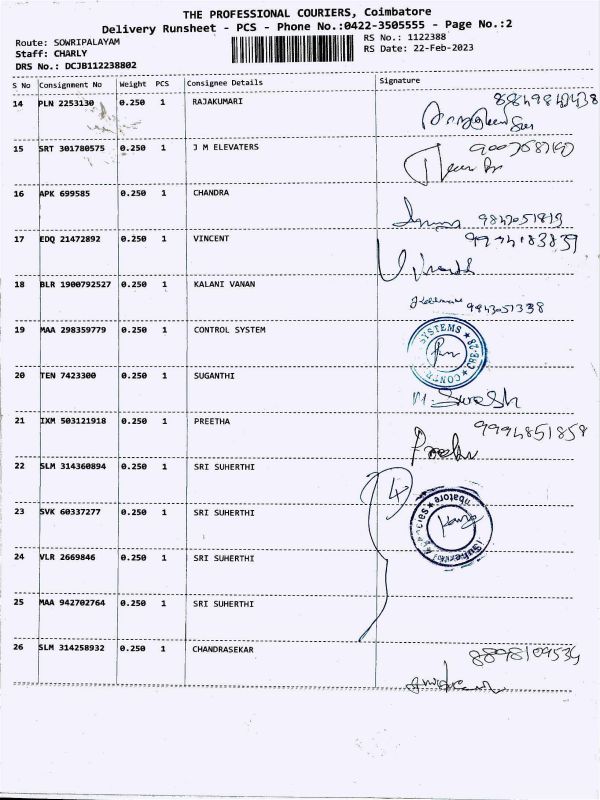 THE PROFESSIONAL COURIERS, Coimbatore
Delivery Runsheet - PCS - Phone No.:0422-3505555 - Page No.:2
Route: SOWRIPALAYAM
Staff: CHARLY
DRS No.: DCJB112238802
RS No.: 1122388
RS Date: 22-Feb-2023
S No Consignment No Weight PCS Consignee Details Signature
14 PLN 2253130 0.250 1 RAJAKUMARI
15 SRT 301780575 0.250 1 J M ELEVATERS
16 APK 699585 0.250 1 CHANDRA
17 EDQ 21472892 0.250 1 VINCENT
18 BLR 1900792527 0.250 1 KALANI VANAN
9943051338
19 MAA 298359779 0.250 1 CONTROL SYSTEM
SYSTEMS
20 TEN 7423300 0.250 1 SUGANTHI
M. Suresh
21 IXM 503121918 0.250 1 PREETHA
9994851858
22 SLM 314360894 0.250 1 SRI SUHERTHI
4
23 SVK 60337277 0.250 1 SRI SUHERTHI
24 VLR 2669846 0.250 1 SRI SUHERTHI
25 MAA 942702764 0.250 1 SRI SUHERTHI
26 SLM 314258932 0.250 1 CHANDRASEKAR